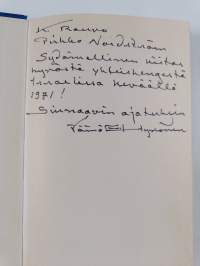 K. Rauno
Pirkko Nordström
Sydämellinen kiitos
hyvästä yhteishengestä
Israelissa keväällä
1971!
Siunaavin ajatuksin
Väinö Hynönen